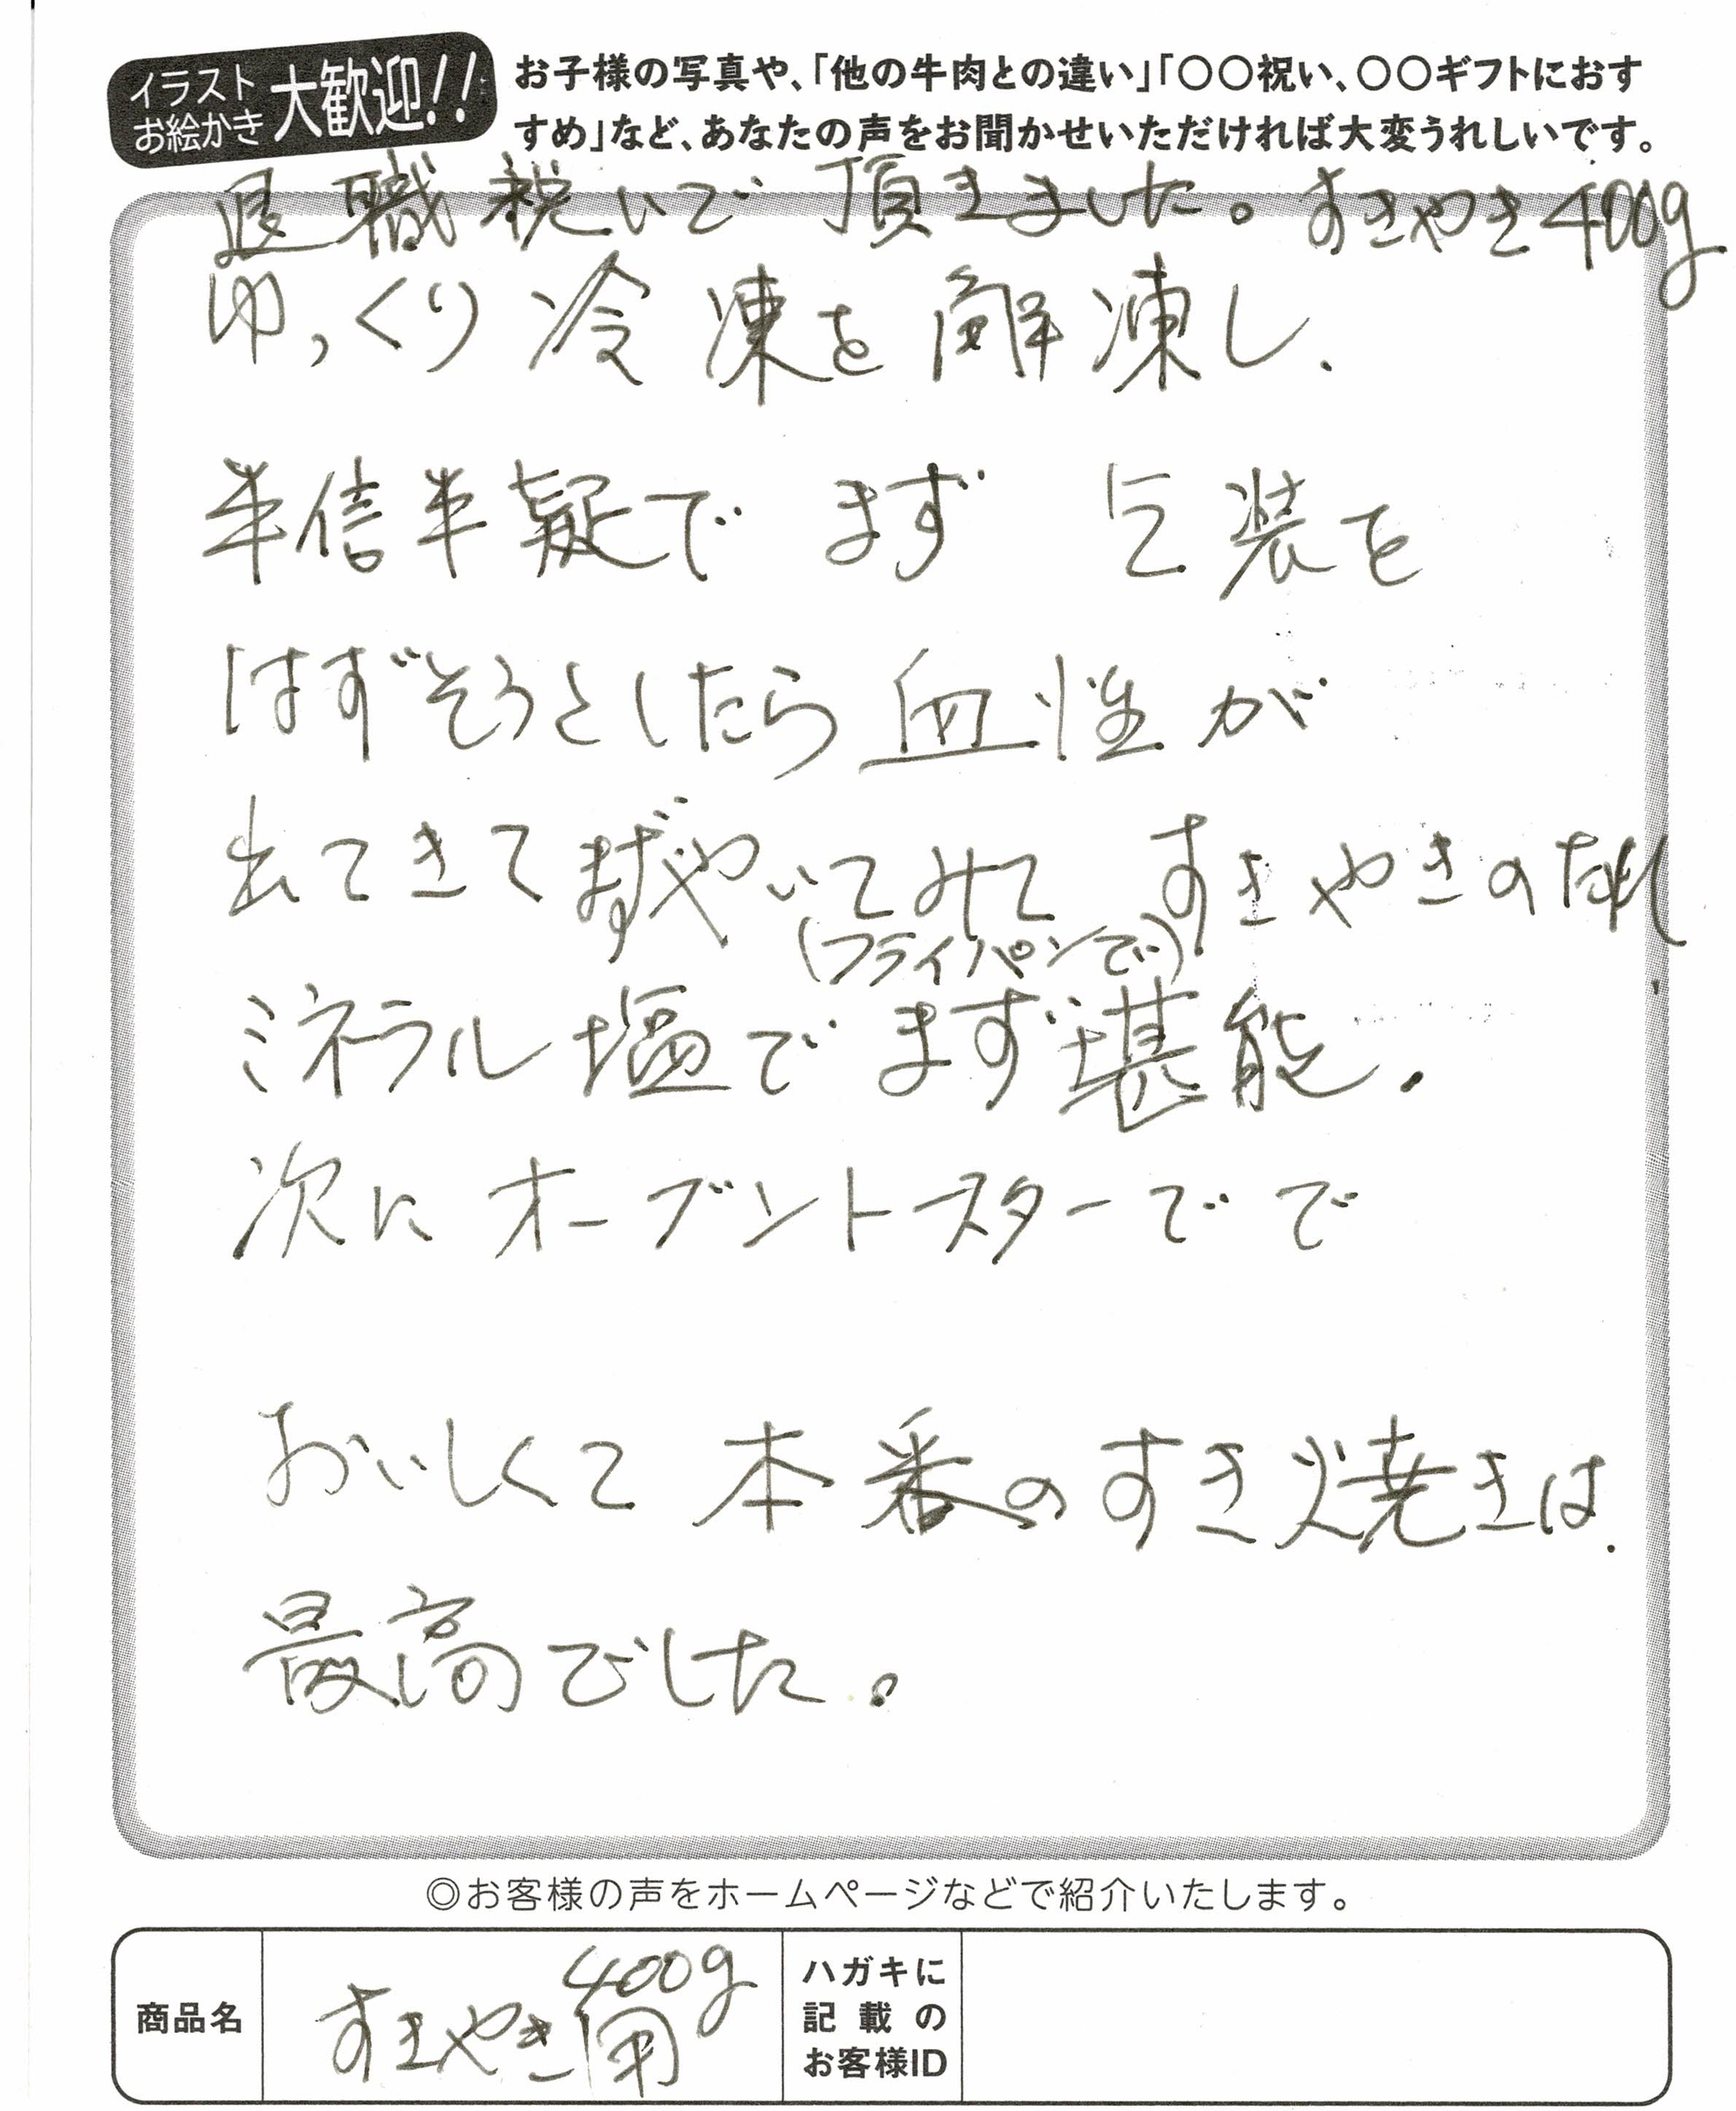 イラスト
お絵かき
大歓迎!!
お子様の写真や、「他の牛肉との違い」「〇〇祝い、〇〇ギフトにおす
すめ」など、あなたの声をお聞かせいただければ大変うれしいです。
退職祝いで 頂きました。すきやき400g
ゆっくり冷凍を解凍し、
半信半疑で まず 包装を
はずそうとしたら血性が
出てきてまずやいてみて すきやきのたれ、
(フライパンで)
ミネラル塩でまず堪能。
次にオーブントースターでで
おいしくて 本番のすき焼きは、
最高でした。
◎お客様の声をホームページなどで紹介いたします。
商品名
400g
すきやき用
ハガキに
記載の
お客様ID